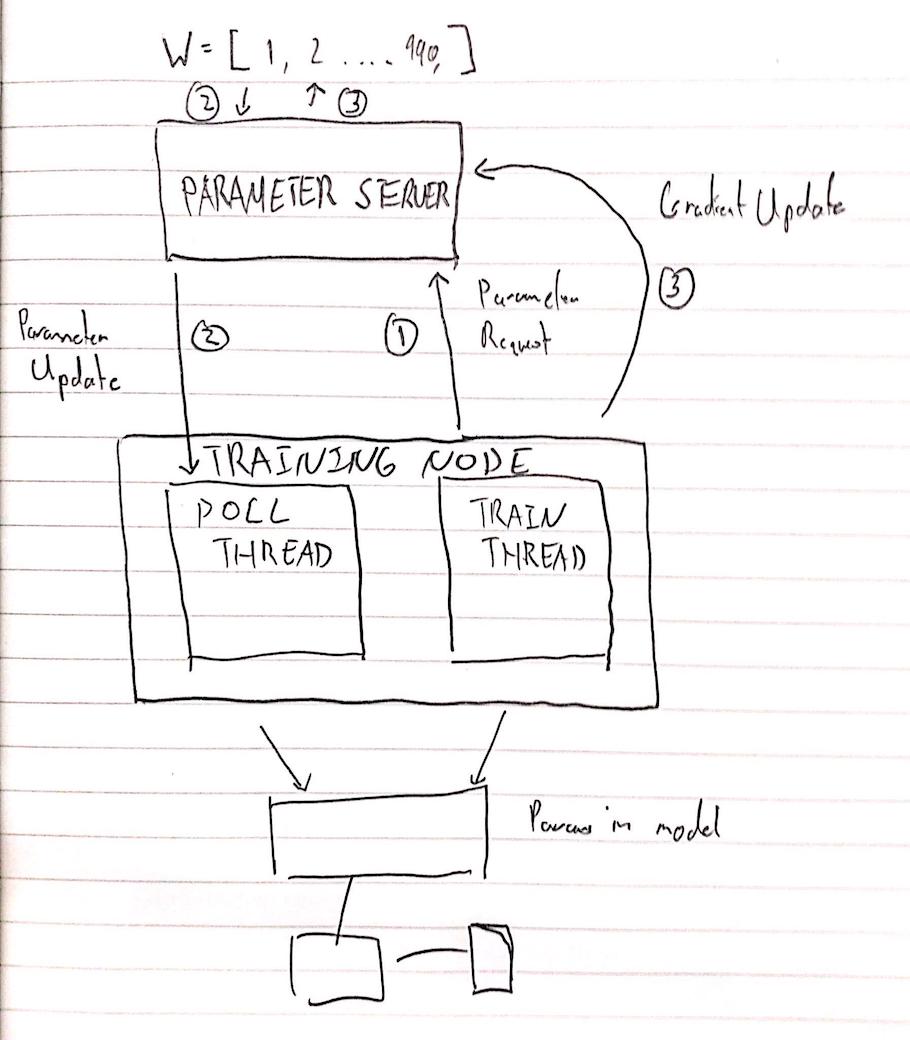 W = [ 1, 2 .... 990, ]
② ↓ ↑ ③
PARAMETER SERVER
Gradient Update
③
Parameter
Update
②
①
Parameter
Request
TRAINING NODE
POLL
THREAD
TRAIN
THREAD
Params in model